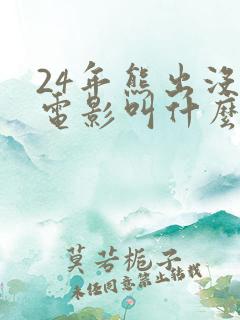 24年熊出没
電影叫什麼
莫若栀子
未经同意禁止转载